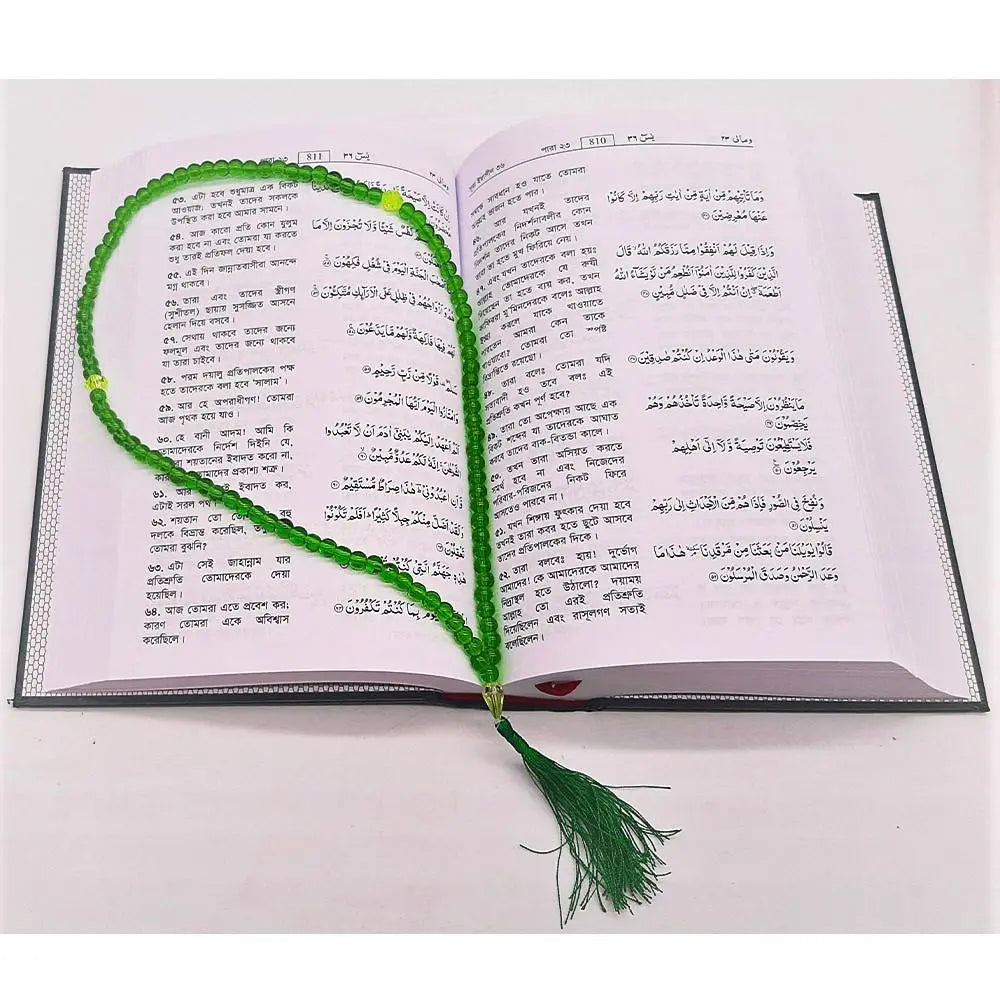 পারা ২৩ 811 يٰسٓ ٣٦ ومالى ٢٣
৫৩. এটা হবে শুধুমাত্র এক বিকট
আওয়াজ, তখনই তাদের সকলকে
উপস্থিত করা হবে আমার সামনে।
৫৪. আজ কারো প্রতি কোন যুলুম
করা হবে না এবং তোমরা যা করতে
শুধু তারই প্রতিফল দেয়া হবে।
৫৫. এই দিন জান্নাতবাসীরা আনন্দে
মগ্ন থাকবে।
৫৬. তারা এবং তাদের স্ত্রীগণ
(সুশীতল) ছায়ায় সুসজ্জিত আসনে
হেলান দিয়ে বসবে।
৫৭. সেথায় থাকবে তাদের জন্যে
ফলমূল এবং তাদের জন্যে থাকবে
যা তারা চাইবে।
৫৮. পরম দয়ালু প্রতিপালকের পক্ষ
হতে তাদেরকে বলা হবে 'সালাম'।
৫৯. আর হে অপরাধীগণ! তোমরা
আজ পৃথক হয়ে যাও।
৬০. হে বানী আদম! আমি কি
তোমাদেরকে নির্দেশ দিইনি যে,
শয়তানের ইবাদত করো না,
তোমাদের প্রকাশ্য শত্রু।
৬১. আর ইবাদত কর,
এটাই সরল
৬২. শয়তান তো বহু
দলকে বিভ্রান্ত করেছিল,
তোমরা বুঝনি?
৬৩. এটা সেই জাহান্নাম যার
প্রতিশ্রুতি তোমাদেরকে দেয়া
হয়েছিল।
৬৪. আজ তোমরা এতে প্রবেশ কর;
কারণ তোমরা একে অবিশ্বাস
করেছিলে।
شَيْئًا وَّلَا تُجْزَوْنَ اِلَّا مَا
الْجَنَّةِ الْيَوْمَ فِيْ شُغُلٍ فٰكِهُوْنَ
فِيْ ظِلٰلٍ عَلَى الْاَرَآئِكِ مُتَّكِـُٔوْنَ
فِيْهَا فَاكِهَةٌ وَّلَهُمْ مَّا يَدَّعُوْنَ
قَوْلًا مِّنْ رَّبٍّ رَّحِيْمٍ
وَامْتَازُوا الْيَوْمَ اَيُّهَا الْمُجْرِمُوْنَ
اَلَمْ اَعْهَدْ اِلَيْكُمْ يٰبَنِيْٓ اٰدَمَ اَنْ لَّا تَعْبُدُوا
الشَّيْطٰنَ اِنَّهٗ لَكُمْ عَدُوٌّ مُّبِيْنٌ
وَّاَنِ اعْبُدُوْنِيْ هٰذَا صِرَاطٌ مُّسْتَقِيْمٌ
وَلَقَدْ اَضَلَّ مِنْكُمْ جِبِلًّا كَثِيْرًا اَفَلَمْ تَكُوْنُوْا
تَعْقِلُوْنَ
هٰذِهٖ جَهَنَّمُ الَّتِيْ كُنْتُمْ
بِمَا كُنْتُمْ تَكْفُرُوْنَ
সূরা ইয়াসীন ৩৬ পারা ২৩ 810 يٰسٓ ٣٦ ومالى ٢٣
সাবধান হও যাতে তোমরা
হতে পার।
আর যখনই তাদের
প্রতিপালকের নিদর্শনাবলীর কোন
নিদর্শন তাদের নিকট আসে তখন
তা হতে মুখ ফিরিয়ে নেয়।
৪৭. এবং যখন তাদেরকে বলা হয়ঃ
আল্লাহ তোমাদেরকে যে রুযী
তা হতে ব্যয় কর,
মু'মিনদেরকে বলেঃ আল্লাহ
করলে যাকে খাওয়াতে
আমরা কেন তাকে
তোমরা তো স্পষ্ট
রয়েছো।
তারা বলেঃ তোমরা যদি
সত্যবাদী হও তবে বলঃ এই
প্রতিশ্রুতি কখন পূর্ণ হবে?
৪৯. তারা তো অপেক্ষায় আছে এক
বিকট শব্দের যা তাদেরকে আঘাত
করবে তাদের বাক-বিতন্ডা কালে।
৫০. তখন তারা অসিয়ত করতে
সমর্থ হবে না এবং নিজেদের
পরিবার-পরিজনের নিকট ফিরে
আসতেও পারবে না।
৫১. যখন শিঙ্গায় ফুৎকার দেয়া হবে
তখনই তারা কবর হতে ছুটে আসবে
তাদের প্রতিপালকের দিকে।
৫২. তারা বলবেঃ হায়! দুর্ভোগ
আমাদের! কে আমাদেরকে আমাদের
নিদ্রাস্থল হতে উঠালো? দয়াময়
আল্লাহ তো এরই প্রতিশ্রুতি
দিয়েছিলেন এবং রাসূলগণ সত্যই
বলেছিলেন।
وَمَا تَاْتِيْهِمْ مِّنْ اٰيَةٍ مِّنْ اٰيٰتِ رَبِّهِمْ اِلَّا كَانُوْا
عَنْهَا مُعْرِضِيْنَ
وَاِذَا قِيْلَ لَهُمْ اَنْفِقُوْا مِمَّا رَزَقَكُمُ اللّٰهُ قَالَ
الَّذِيْنَ كَفَرُوْا لِلَّذِيْنَ اٰمَنُوْٓا اَنُطْعِمُ مَنْ لَّوْ يَشَآءُ اللّٰهُ
اَطْعَمَهٗٓ اِنْ اَنْتُمْ اِلَّا فِيْ ضَلٰلٍ مُّبِيْنٍ
وَيَقُوْلُوْنَ مَتٰى هٰذَا الْوَعْدُ اِنْ كُنْتُمْ صٰدِقِيْنَ
مَا يَنْظُرُوْنَ اِلَّا صَيْحَةً وَّاحِدَةً تَاْخُذُهُمْ وَهُمْ
يَخِصِّمُوْنَ
فَلَا يَسْتَطِيْعُوْنَ تَوْصِيَةً وَّلَآ اِلٰٓى اَهْلِهِمْ
يَرْجِعُوْنَ
وَنُفِخَ فِي الصُّوْرِ فَاِذَا هُمْ مِّنَ الْاَجْدَاثِ اِلٰى رَبِّهِمْ
يَنْسِلُوْنَ
قَالُوْا يٰوَيْلَنَا مَنْۢ بَعَثَنَا مِنْ مَّرْقَدِنَا هٰذَا مَا
وَعَدَ الرَّحْمٰنُ وَصَدَقَ الْمُرْسَلُوْنَ